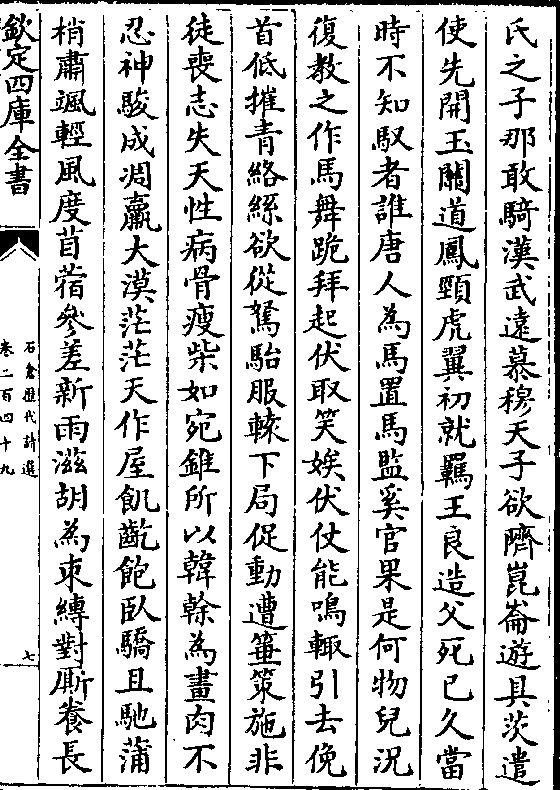 氏之子那敢騎漢武遠慕穆天子欲隮崑崙遊具茨遣
使先開玉關道鳳頸虎翼初就羈王良造父死已久當
時不知馭者誰唐人為馬置馬監奚官果是何物兒況
復教之作馬舞跪拜起伏取笑娭伏仗能鳴輙引去俛
首低摧青絡絲欲從駑駘服轅下局促動遭箠策施非
徒喪志失天性病骨瘦柴如宛錐所以韓幹為畫肉不
忍神駿成凋羸大漠茫茫天作屋飢齕飽臥驕且馳蒲
梢肅颯輕風度苜蓿參差新雨滋胡為束縛對厮養長
欽定四庫全書
石倉歷代詩選
卷二百四十九
七